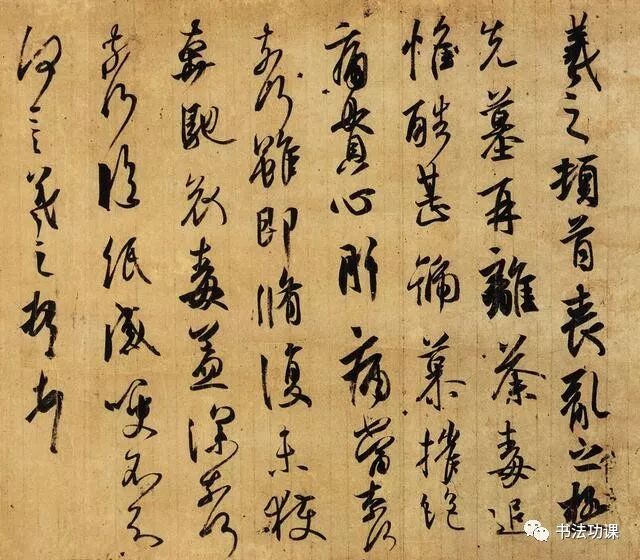 羲之頓首喪亂之極
先墓再離荼毒追
惟酷甚號慕摧絕
痛貫心肝痛當奈何
奈何雖即脩復未獲
奔馳哀毒益深奈何
奈何臨紙感哽不知
何言羲之頓首
书法功课